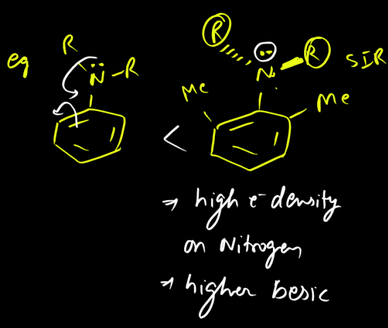 eg
R
N-R
<
R
N
R
SIR
Me
Me
→ high e⁻ density
on Nitrogen,
→ higher besic